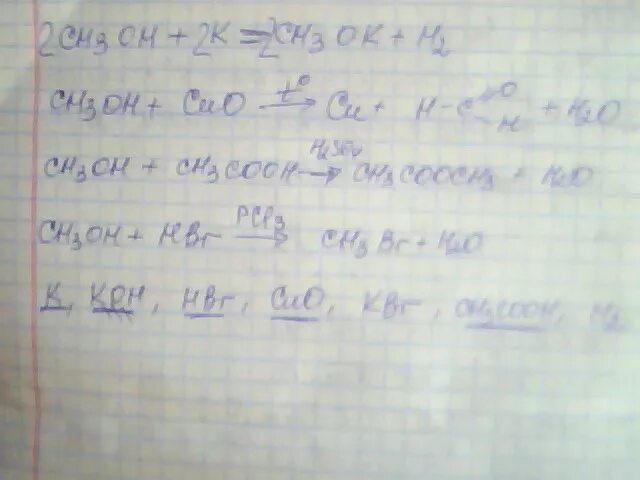 2CH3OH + 2K = 2CH3OK + H2
CH3OH + CuO t° → Cu + H-C=O -H + H2O
CH3OH + CH3COOH H2SO4 → CH3COOCH3 + H2O
CH3OH + HBr PCl3 → CH3Br + H2O
K, KOH, HBr, CuO, KBr, CH3COOH, H2